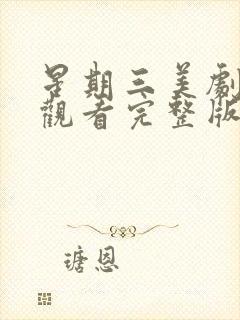 星期三美劇
觀看完整版
瑭恩